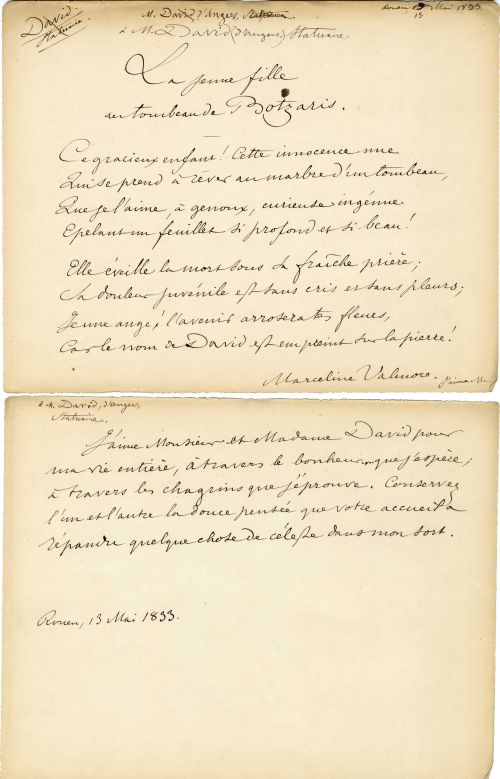 David.
Statuaire
M. David d'Angers, Statuaire
à M. David (d'angers) Statuaire.
Rouen 13 Mai 1833
13
La jeune fille
au tombeau de Botzaris.
Ce gracieux enfant! Cette innocence nue
Qui se prend à rêver au marbre d'un tombeau,
Que je l'aime, à genoux, curieuse ingénue
Epelant un feuillet si profond et si beau!
Elle éveille la mort sous sa fraîche prière;
Sa douleur juvénile est sans cris et sans pleurs;
Jeune ange! l'avenir arrosera tes fleurs,
Car le nom de David est empreint sur la pierre!
Marceline Valmore.
J'aime M.
à M. David, d'angers,
Statuaire.
J'aime Monsieur et Madame David pour
ma vie entière, à travers le bonheur que j'espère;
à travers les chagrins que j'éprouve. Conservez
l'un et l'autre la douce pensée que votre accueil a
répandu quelque chose de céleste dans mon sort.
Rouen, 13 Mai 1833.